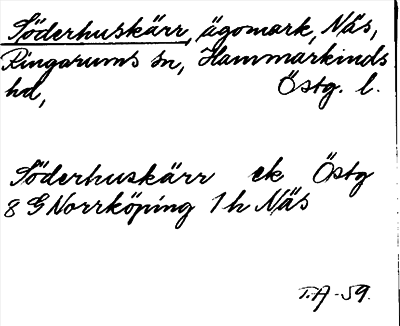 Söderhuskärr, ägomark, Näs,
Ringarums sn, Hammarkinds
hd, Östg. l.
Söderhuskärr ek Östg
8 G Norrköping 1 h Näs
T.A-59.